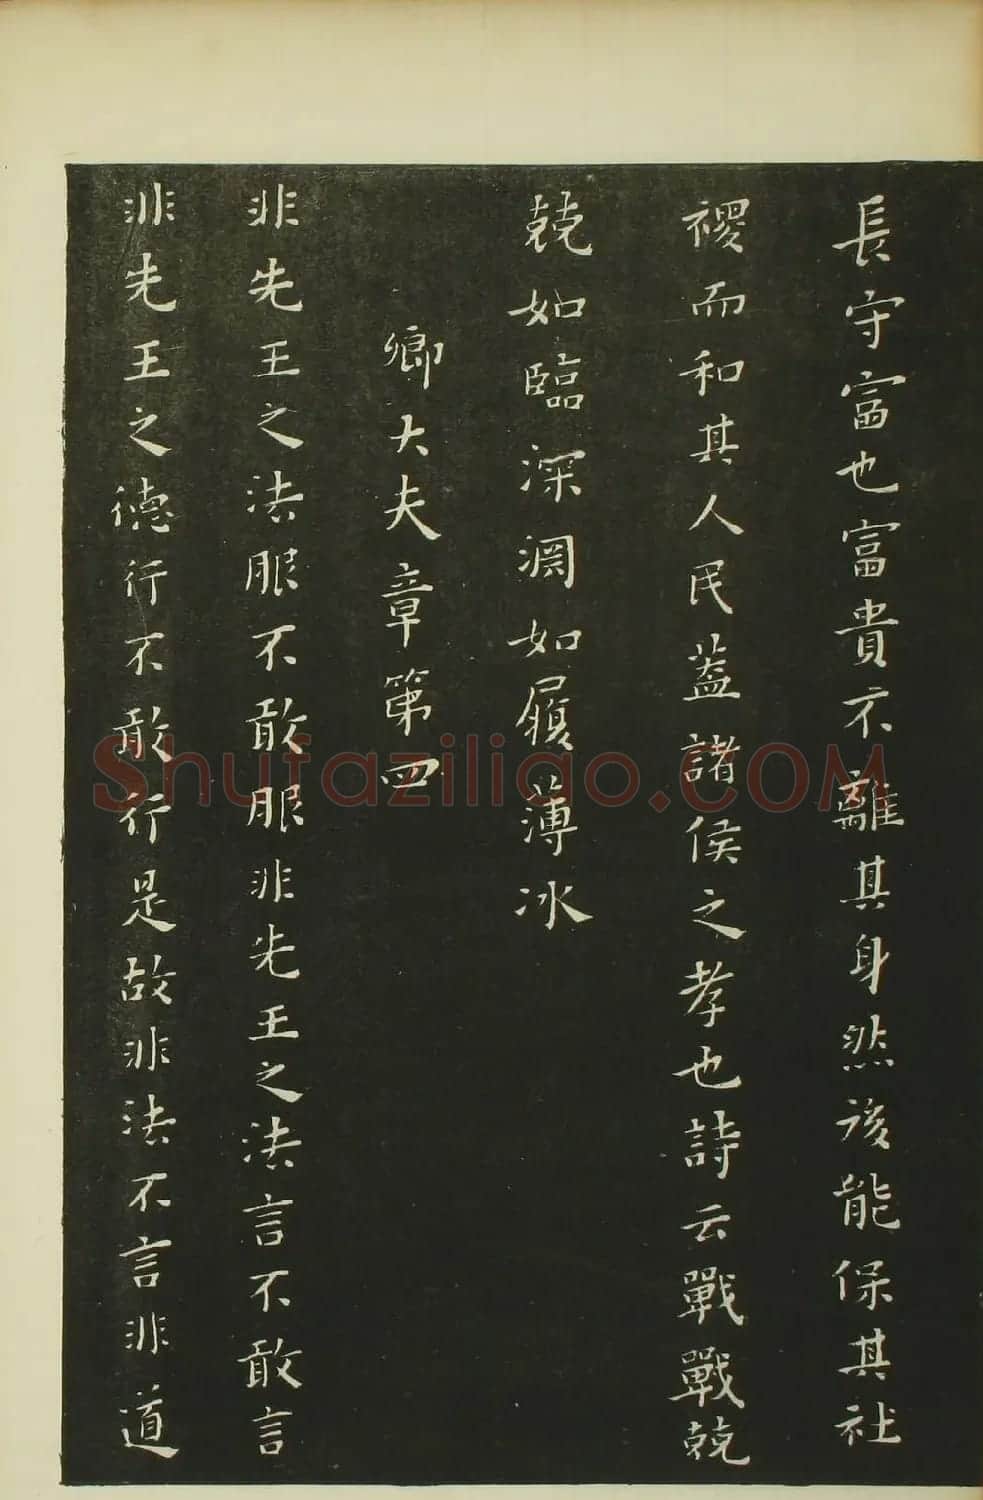 長守富也富貴不離其身然後能保其社
稷而和其人民蓋諸侯之孝也詩云戰戰兢
兢如臨深淵如履薄冰
卿大夫章第四
非先王之法服不敢服非先王之法言不敢言
非先王之德行不敢行是故非法不言非道
Shufaziligo.COM